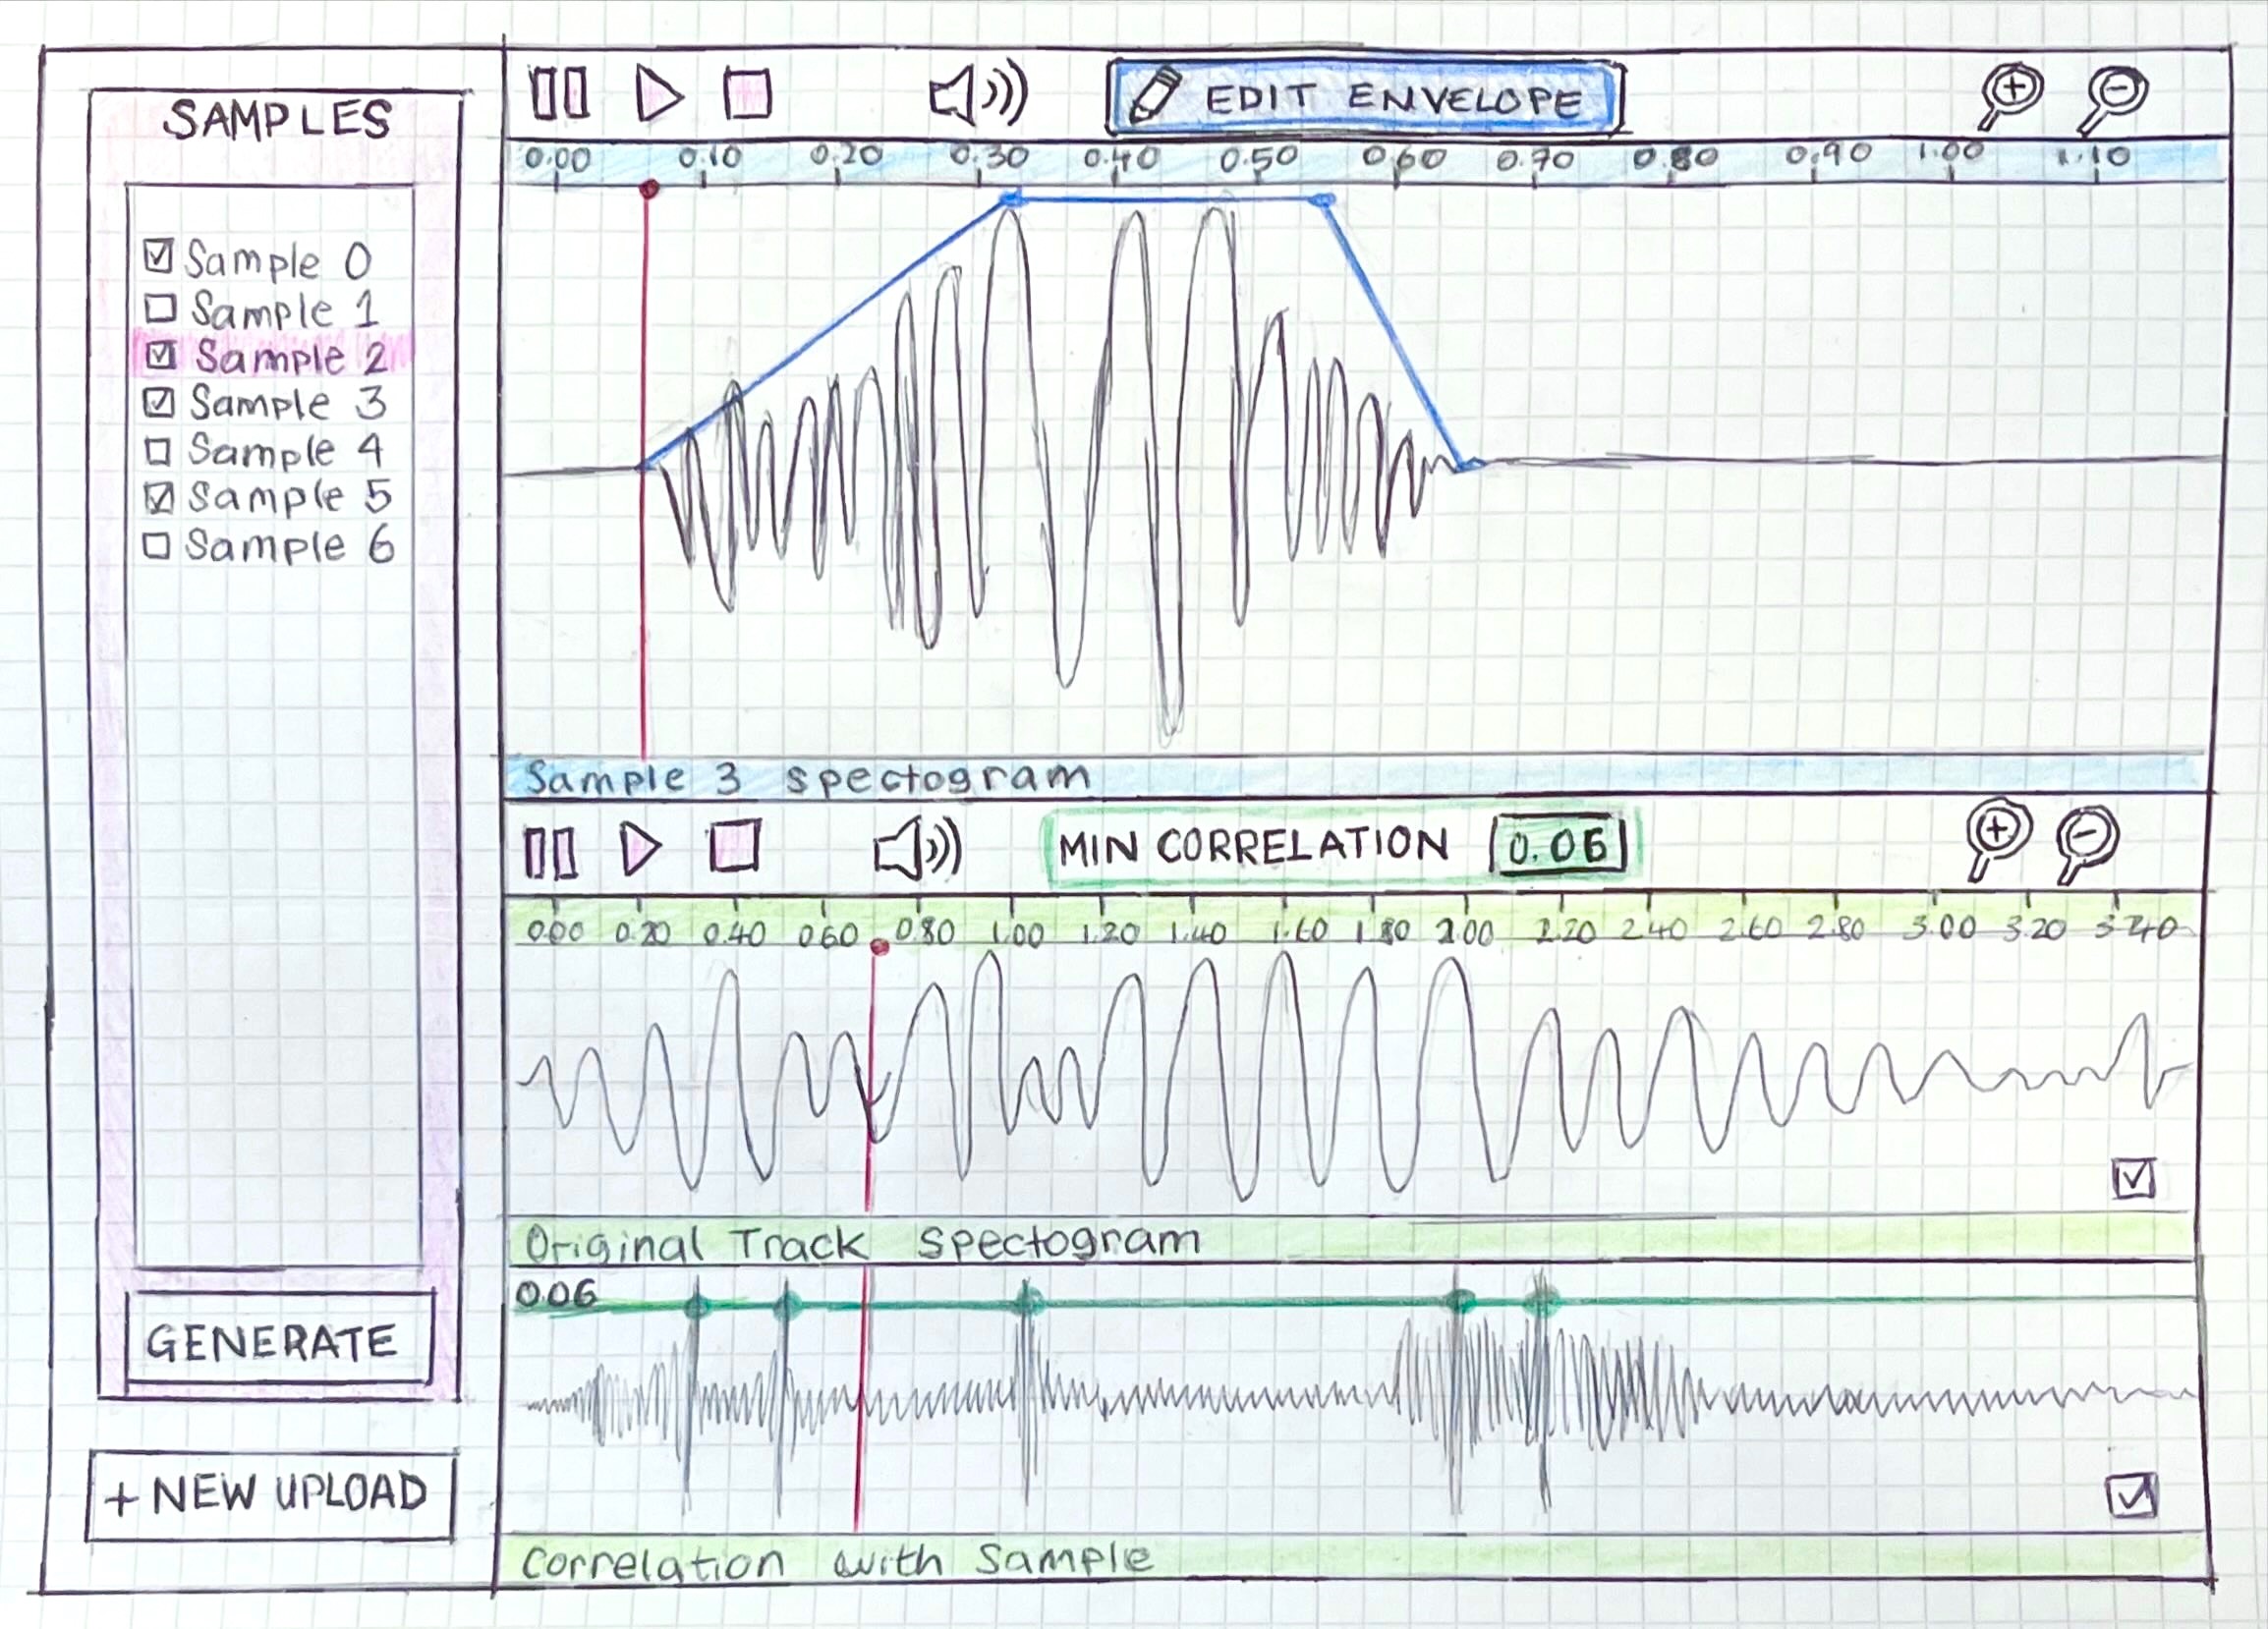 SAMPLES
Sample 0
Sample 1
Sample 2
Sample 3
Sample 4
Sample 5
Sample 6
GENERATE
+ NEW UPLOAD
EDIT ENVELOPE
0.00 0.10 0.20 0.30 0.40 0.50 0.60 0.70 0.80 0.90 1.00 1.10
Sample 3 spectogram
MIN CORRELATION 0.06
0.00 0.20 0.40 0.60 0.80 1.00 1.20 1.40 1.60 1.80 2.00 2.20 2.40 2.60 2.80 3.00 3.20 3.40
Original Track Spectogram
0.06
Correlation with Sample